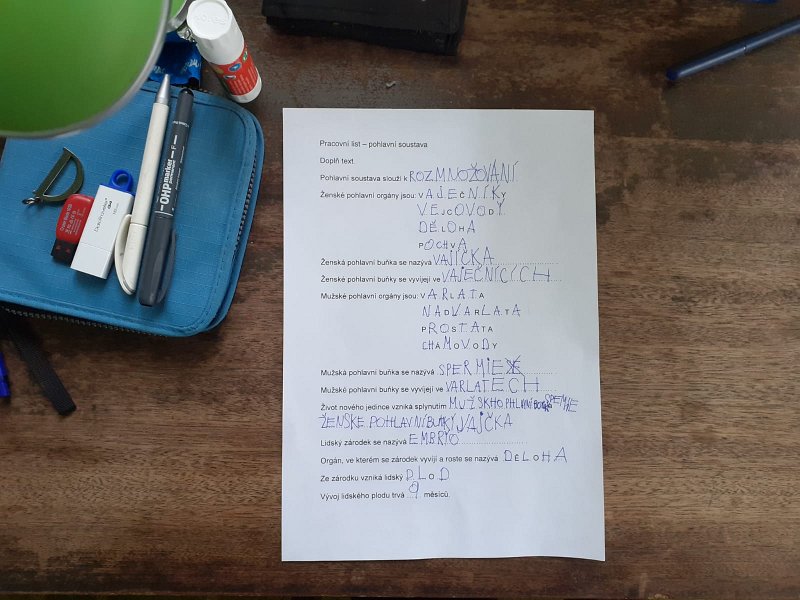 OHP marker
Pracovní list – pohlavní soustava
Doplň text.
Pohlavní soustava slouží k ROZMNOŽOVÁNÍ
Ženské pohlavní orgány jsou: VAJEČNÍKY
VEJCOVODY
DĚLOHA
POCHVA
Ženská pohlavní buňka se nazývá VAJÍČKA
Ženské pohlavní buňky se vyvíjejí ve VAJEČNÍCÍCH
Mužské pohlavní orgány jsou: VARLATA
NADVARLATA
PROSTATA
CHÁMOVODY
Mužská pohlavní buňka se nazývá SPERMIE
Mužské pohlavní buňky se vyvíjejí ve VARLATECH
Život nového jedince vzniká splynutím MUŽSKHO PHLAVNÍ SPEMIE
ŽENSKÉ POHLAVNÍ BUŇKY VAJÍČKA
Lidský zárodek se nazývá EMBRYO
Orgán, ve kterém se zárodek vyvíjí a roste se nazývá DĚLOHA
Ze zárodku vzniká lidský PLOD
Vývoj lidského plodu trvá 9 měsíců.